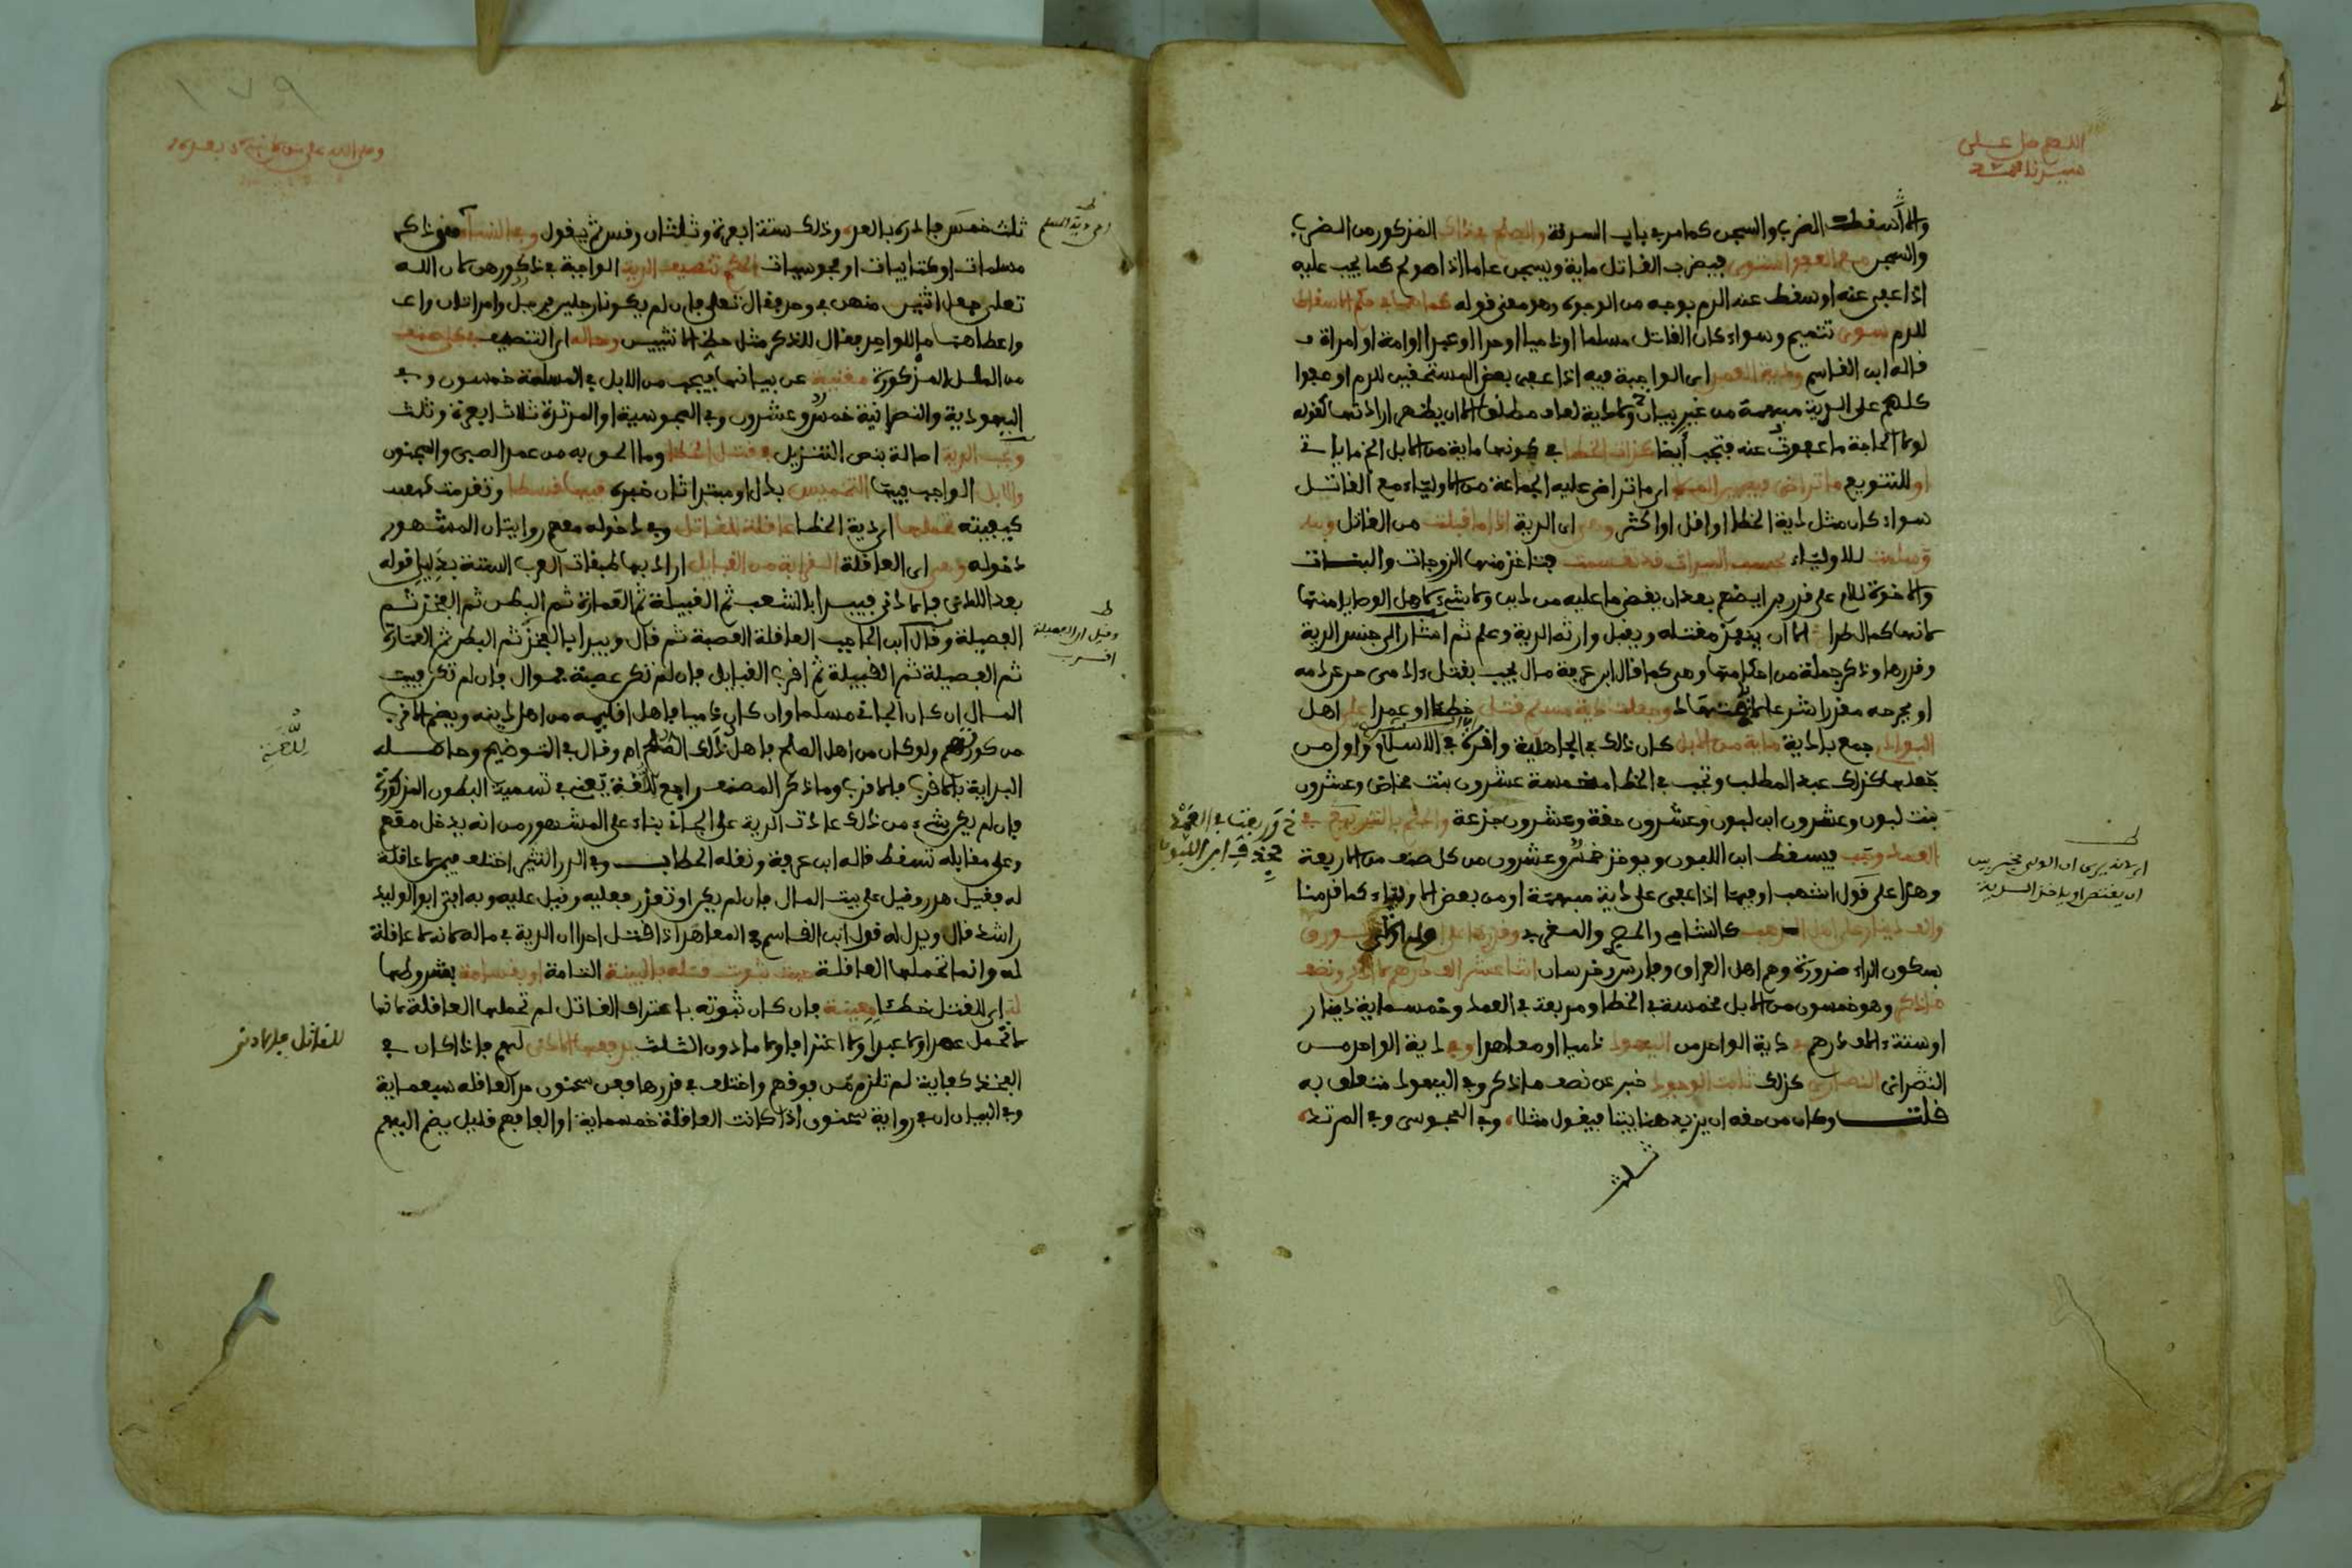 اللهم صل على
سيدنا محمد
والا سفطت الضرب والسجن كما مر في باب السرفة والصلح في ذلك المذكور من الضرب
والسجن مع العبو استوى فيضرب الفاتل ماية ويسجن عاما اذا صولح كما يجب عليه
اذا عفى عنه او سفط عنه الدم بوجه من الوجوه وهو معنى فوله كما هما في حكم الاسفاط
للدم سوى تتميم وسواء كان الفاتل مسلما او ذميا او حرا او عبدا او امة او امراة
فاله ابن الفاسم ودية العمد اى الواجبة فيه اذا عفى بعض المستحفين للدم او عفوا
كلهم على الدية مبهمة من غير بيان ولادية لعاف مطلق الا ان يظهر ارادتها كفوله
لولا الحاجة ما عفوت عنه فتجب أيضا كذاك الخطا في كونها ماية من الابل
او للتنويع ما تراضى فيه اى ما تراضى عليه الجماعة من الاولياء مع الفاتل
سواء كان مثل دية الخطا او افل او اكثر وهى اى الدية اذا ما فبلت من الفاتل
وسلمت للاولياء بحسب الميراث فد فسمت فتاخذ منها الزوجات والبنات
والاخوة للام على فدر ايضهم بعد ان يفضى ما عليه من دين ولا شىء لاهل الوصايا منها
لانها كمال طرا الا ان ينفذ مفتله ويفبل وارثه الدية وعلم ثم اشار الى جنس الدية
وفدرها وذكر جملة من احكامها وهى كما فال ابن عرفة مال يجب بفتل ءادمى حر عن دمه
او بجرحه مفدرا شرعا لا باجتهاد وجعلت دية مسلم فتل خطئا او عمدا على اهل
البوادى جمع بادية ماية من الابل كان ذلك في الجاهلية وافره في الاسلام واول من
جعلها كذلك عبد المطلب وتجب في الخطا مخمسة عشرون بنت مخاض وعشرون
بنت لبون وعشرون ابن لبون وعشرون حفة وعشرون جذعة والحكم بالتربيع في
العمد وجب فيسفط ابن اللبون ويوخذ خمس وعشرون من كل صنف من الاربعة
وهذا على فول اشهب او فيما اذا عفى على دية مبهمة او من بعض الاولياء كما فدمنا
والف دينار على اهل الذهب كالشامى والمصرى والمغربى وفدرها على اولى الورق
بسكون الراء ضرورة وهم اهل العراق وفارس وخرسان اثنا عشر الف درهم لا ادنى ونصف
ما ذكر وهو خمسون من الابل مخمسة في الخطا ومربعة في العمد وخمسماية دينار
او ستة ءالاف درهم في دية الواحد من اليهود ذميا او معاهدا وفي دية الواحد من
النصرانى النصارى كذلك ثابت الوجود خبر عن نصف ما ذكر وفي اليهود متعلق به
فلت وكان من حفه ان يزيد هنا بيتا فيفول مثلا وفي المجوسى وفي المرتد
ثلث
خ وربعت في العمد
بحذف ابن اللبون
ط
اى انه يرى ان الولى مخير بين
ان يفتص او ياخذ الدية
١٧٩
وصلى الله على من لا نبى بعده
ثلث خمس فادره بالعد وذلك ستة ابعرة وثلثان وفس ثم يفول وفي النساء
مسلمات او كتابيات او مجوسيات الحكم تنصيف الدية الواجبة في ذكورهن لان الله
تعلى جعل اثنين منهن في وحد ففال تعلى فان لم يكونا رجلين فرجل وامراتان
واعطاهما ما للواحد ففال للذكر مثل حظ الانثيين وحاله اى التنصيف في كل صنف
من الملل المذكورة مغنية عن بيانها فيجب من الابل في المسلمة خمسون وفي
اليهودية والنصرانية خمس وعشرون وفي المجوسية او المرتدة ثلاث ابعرة وثلث
وتجب الدية اصالة بنص التنزيل في فتل الخطا وما الحق به من عمد الصبى والمجنون
والابل الواجب فيها التخميس بدل او مبتدا ثان خبره فيها فسطا وتفدمت
كيفيته تحملها اى دية الخطا عافلة للفاتل وفي دخوله معهم روايتان المشهور
دخوله وهى اى العافلة الفرابة من الفبايل اراد بها طبفات العرب الستة بدليل فوله
بعد الادنى فالادنى فيبدا بالشعب ثم الفبيلة ثم العمارة ثم البطن ثم الفخذ ثم
الفصيلة وفال ابن الحاجب العافلة العصبة ثم فال ويبدا بالفخذ ثم البطن ثم العمارة
ثم الفصيلة ثم الفبيلة ثم افرب الفبايل فان لم تكن عصبة فموال فان لم تكن فبيت
المال ان كان الجانى مسلما وان كان ذميا فاهل افليمه من اهل دينه ويضم الافرب
من كورهم ولو كان من اهل الصلح فاهل ذلك الصلح اه وفال في التوضيح وحاصله
البداية بالافرب فالافرب وما ذكر المصنف راجع للغة يعنى في تسمية البطون المذكورة
فان لم يكن شىء من ذلك عادت الدية على الجانى بناء على المشهور من انه يدخل معهم
وعلى مفابله تسفط فاله ابن عرفة ونفله الحطاب وفي الدر النثير اختلف فيمن لا عافلة
له ففيل هدر وفيل على بيت المال فان لم يكن او تعذر فعليه وفيل عليه وبه افتى ابو الوليد
راشد فال ويدل له فول ابن الفاسم في المعاهد اذا فتل احدا ان الدية في ماله لانه لا عافلة
له وانما تحملها العافلة حيث ثبوت فتله بالبينة التامة او بفسامة بشروطها
لذا اى للفتل خطئا معينة فان كان ثبوته باعتراف الفاتل لم تحملها العافلة لانها
لا تحمل عمدا ولا عبدا ولا اعترافا ولا ما دون الثلث يدفعها الادنى لهم فاذا كان في
الفخذ كفاية لم تلزم من فوفهم واختلف في فدرها فعن سحنون من العافله سبعماية
وفي البيان ان في رواية سحنون اذا كانت العافلة خمسماية او الفا فهم فليل يضم اليهم
ط
وفيل ان الفصيلة
افرب
للفاتل فالادنى